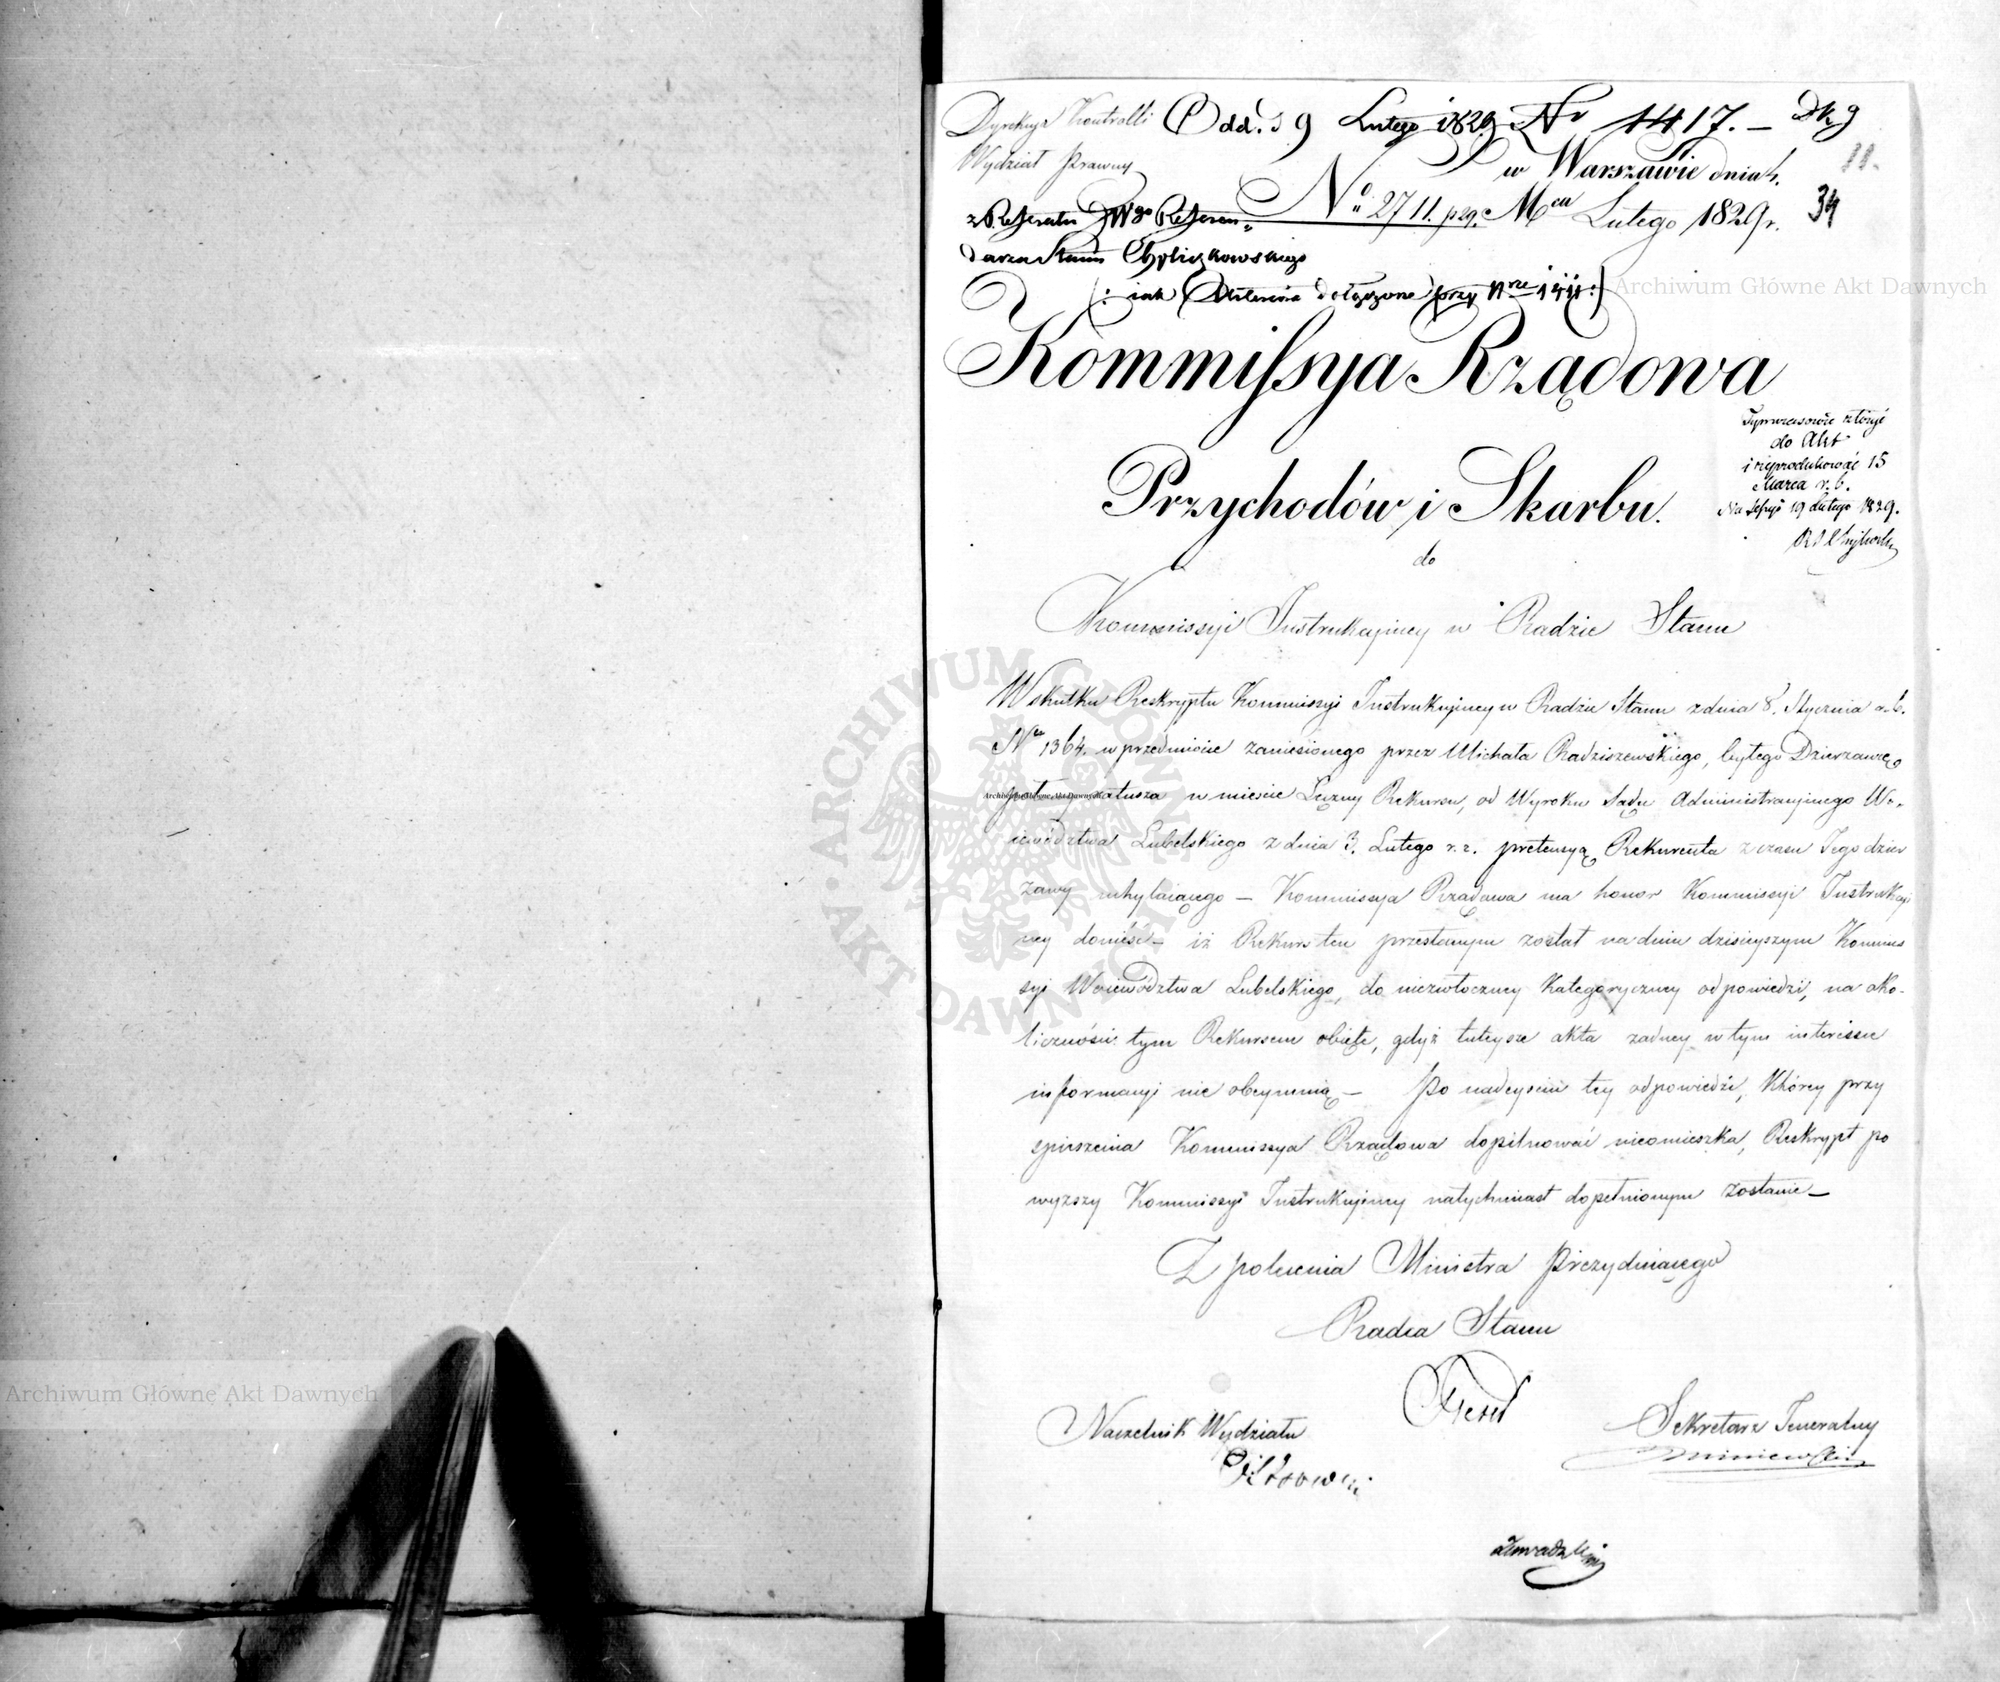 Dyrekcya Kontrolli Odd. 9 Lutego 1829 Nr 1417. —
11.
Wydział Prawny
w Warszawie dnia 4.
Nº 2711. Mca Lutego 1829 r.
34
z Referatu JWgo Referen„
darza Stanu
(: iak dołączone przy Nrze 1411 :)
Kommissya Rządowa
Przychodów i Skarbu.
Tymczasowie złożyć
do Akt
i reprodukować 15
Marca r. b.
Na Sessyi 19 Lutego 1829.
do
Kommissyi Instrukcyiney w Radzie Stanu
Wskutku Reskryptu Kommissyi Instrukcyiney w Radzie Stanu z dnia 8. Stycznia r. b.
Nro 1364. w przedmiocie zaniesionego przez Michała Radziszewskiego, byłego Dzierzawcę
Ratusza w mieście Łęczny Rekursu, od Wyroku Sądu Administracyinego Wo-
iewództwa Lubelskiego z dnia 3. Lutego r. z. pretensyą Rekurenta z czasu Jego dzier
zawy uchylaiącego — Kommissya Rządowa ma honor Kommissyi Instrukcyi
ney donieść — iż Rekurs ten przesłanym został na dniu dzisieyszym Kommis
syi Woiewództwa Lubelskiego, do niezwłoczney kategoryczney odpowiedzi, na oko-
liczności tym Rekursem obięte, gdyż tuteysze akta zadney w tym interessie
informacyi nie obeymuią — Po nadeyściu tey odpowiedzi, którey przy
spieszenia Kommissya Rządowa dopilnować nieomieszka, Reskrypt po
wyzszy Kommissyi Instrukcyiney natychmiast dopełnionym zostanie —
Z polecenia Ministra Prezyduiącego
Radca Stanu
Naczelnik Wydziału
Sekretarz Jeneralny
Archiwum Główne Akt Dawnych
Archiwum Główne Akt Dawnych
Archiwum Główne Akt Dawnych
ARCHIWUM GŁÓWNE AKT DAWNYCH